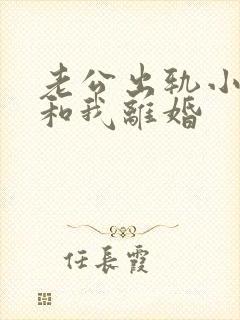 老公出轨小
和我離婚
任長霞